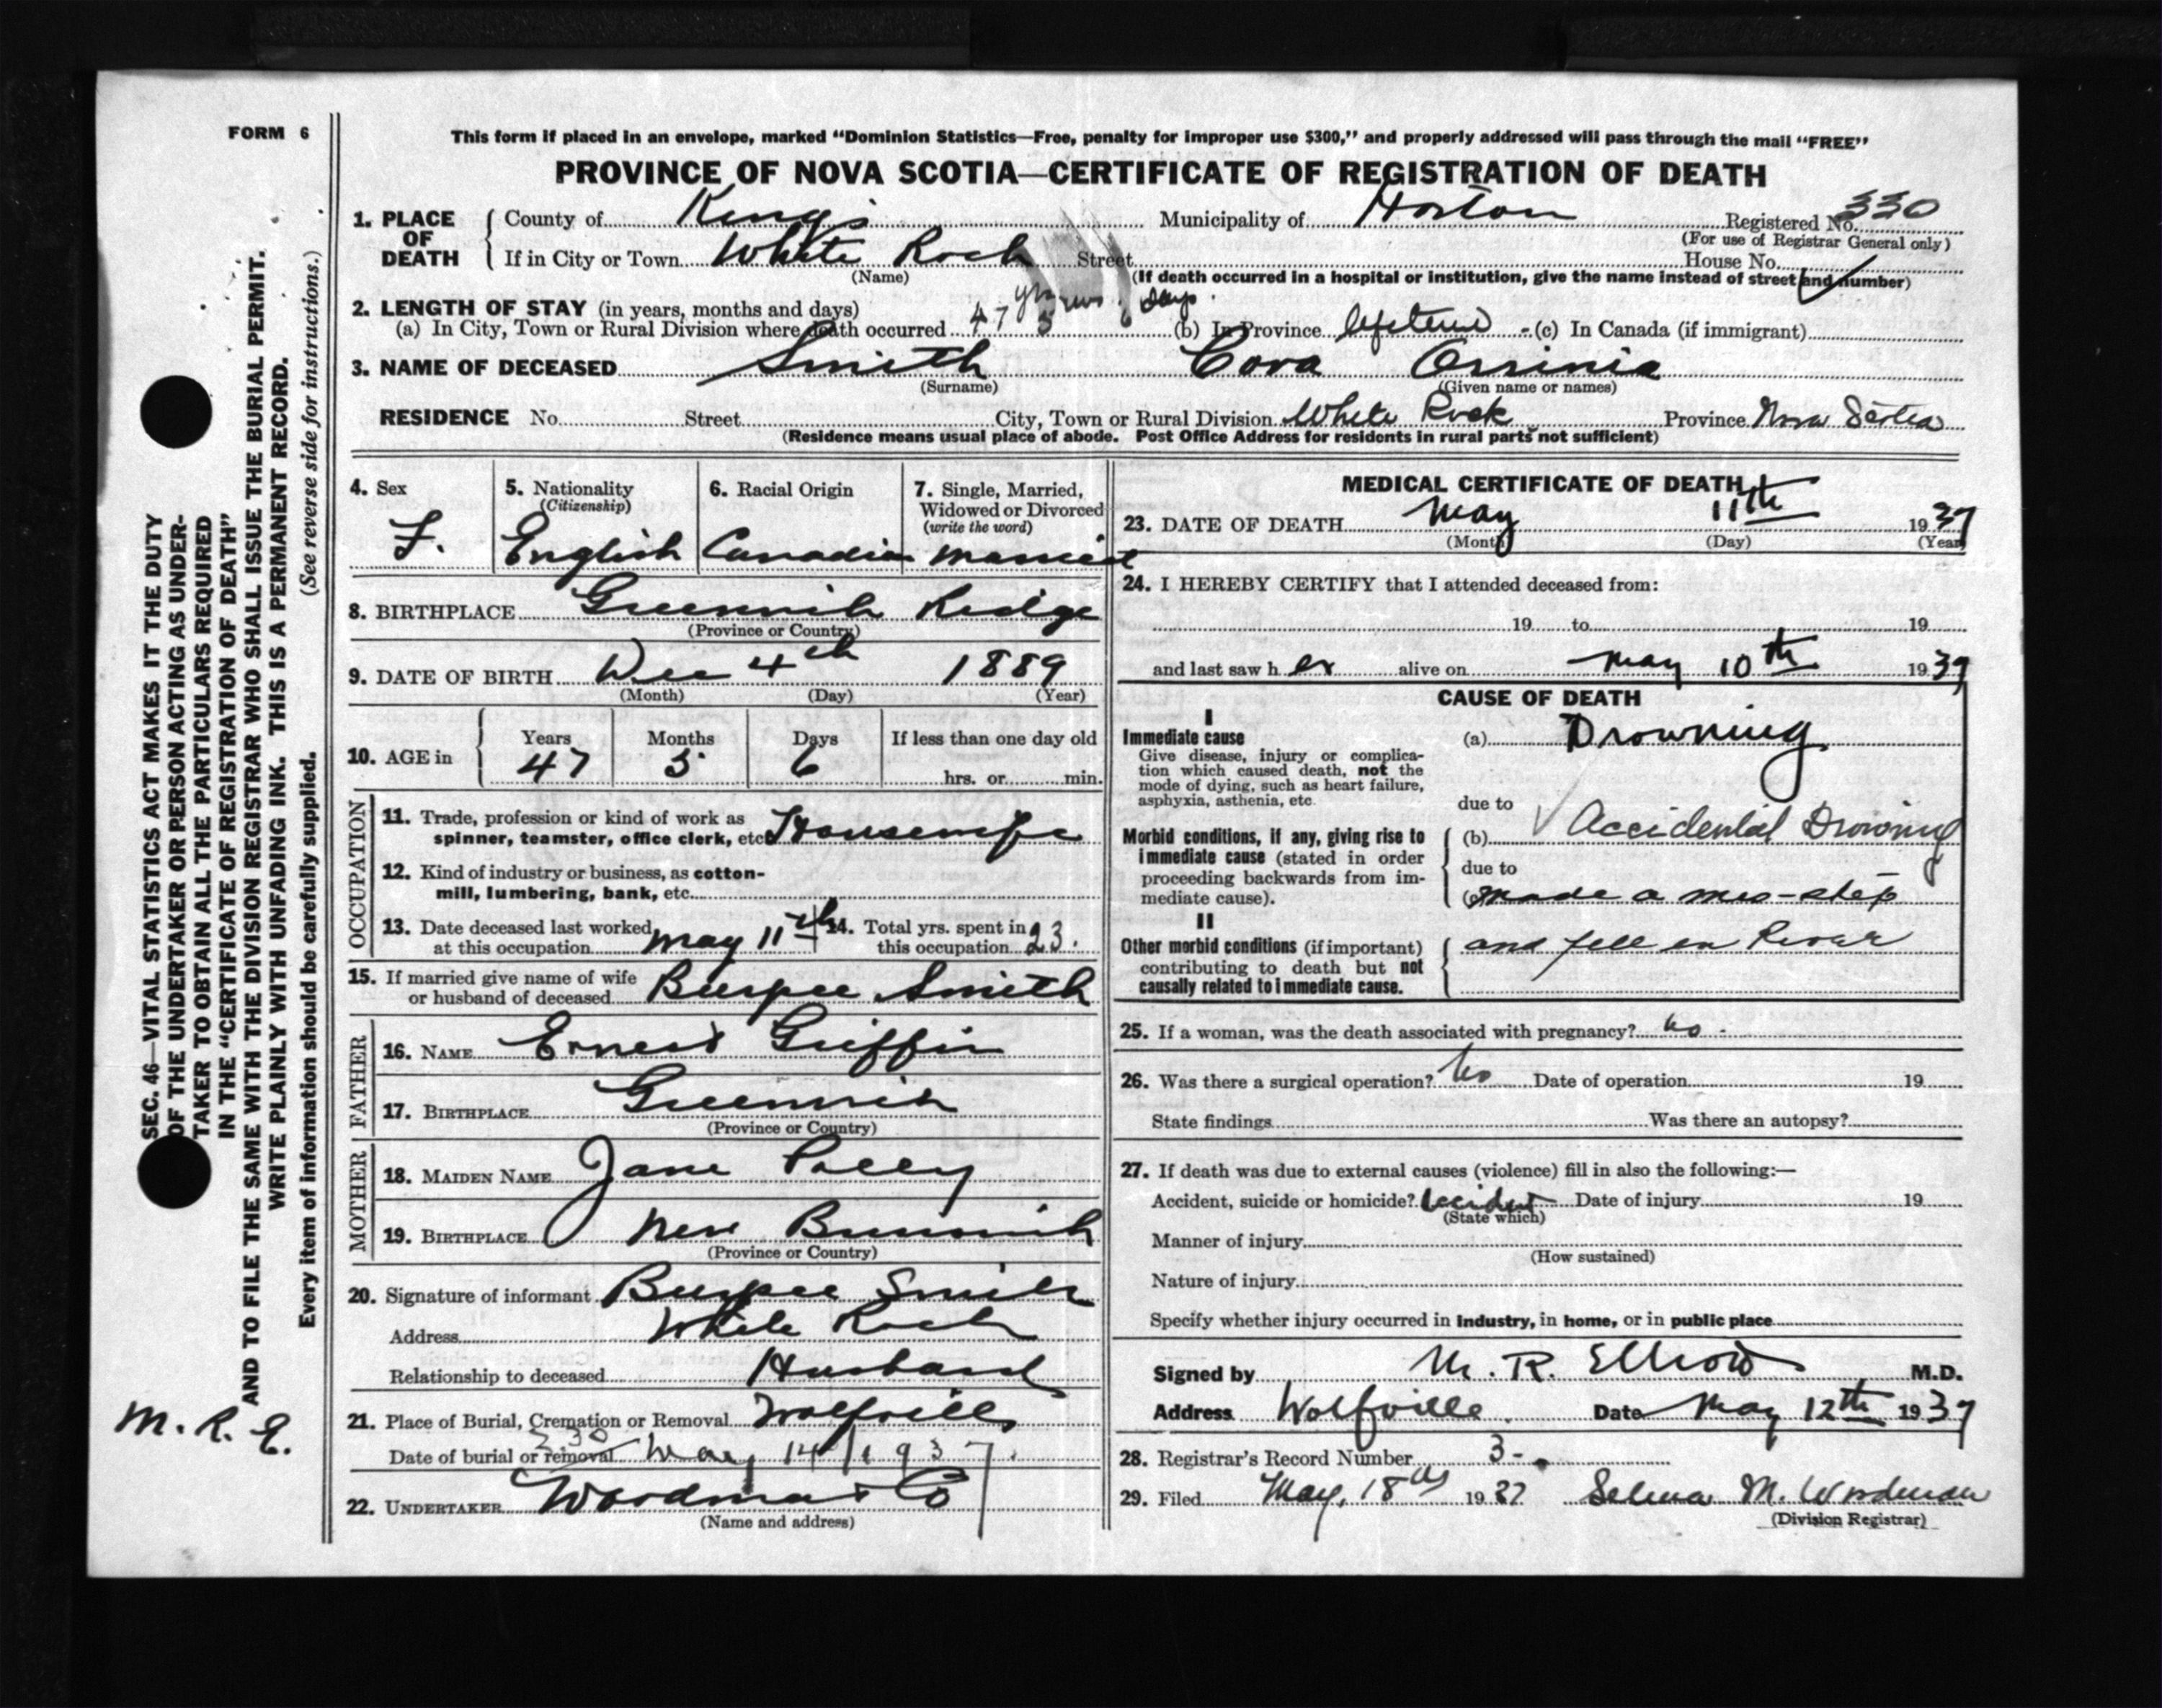 FORM 6
This form if placed in an envelope, marked "Dominion Statistics—Free, penalty for improper use $300," and properly addressed will pass through the mail "FREE"
PROVINCE OF NOVA SCOTIA—CERTIFICATE OF REGISTRATION OF DEATH
1. PLACE OF DEATH
County of Kings Municipality of Horton Registered No. 330
(For use of Registrar General only)
If in City or Town White Rock Street House No.
(Name) (If death occurred in a hospital or institution, give the name instead of street and number)
2. LENGTH OF STAY (in years, months and days)
(a) In City, Town or Rural Division where death occurred 47 yrs 5 mos. 6 days. (b) In Province lifetime (c) In Canada (if immigrant)
3. NAME OF DECEASED Smith Cora
(Surname) (Given name or names)
RESIDENCE No. Street City, Town or Rural Division White Rock Province Nova Scotia
(Residence means usual place of abode. Post Office Address for residents in rural parts not sufficient)
4. Sex F.
5. Nationality (Citizenship) English
6. Racial Origin Canadian
7. Single, Married, Widowed or Divorced (write the word) married
8. BIRTHPLACE Greenwich Ridge
(Province or Country)
9. DATE OF BIRTH Dec 4th 1889
(Month) (Day) (Year)
10. AGE in Years 47 Months 5 Days 6 If less than one day old hrs. or min.
OCCUPATION
11. Trade, profession or kind of work as
spinner, teamster, office clerk, etc. Housewife
12. Kind of industry or business, as cotton-
mill, lumbering, bank, etc.
13. Date deceased last worked at this occupation May 11th
14. Total yrs. spent in this occupation 23.
15. If married give name of wife
or husband of deceased Burpee Smith
FATHER
16. NAME Ernest Griffin
17. BIRTHPLACE Greenwich
(Province or Country)
MOTHER
18. MAIDEN NAME Jane
19. BIRTHPLACE New Brunswick
(Province or Country)
20. Signature of informant Burpee Smith
Address White Rock
Relationship to deceased Husband
21. Place of Burial, Cremation or Removal Wolfville
Date of burial or removal 2.30 May 14/1937
22. UNDERTAKER Woodman Co
(Name and address)
MEDICAL CERTIFICATE OF DEATH
23. DATE OF DEATH May 11th 1937
(Month) (Day) (Year)
24. I HEREBY CERTIFY that I attended deceased from:
19 to 19
and last saw her alive on May 10th 1937
CAUSE OF DEATH
I
Immediate cause
Give disease, injury or complica-
tion which caused death, not the
mode of dying, such as heart failure,
asphyxia, asthenia, etc.
(a) Drowning
due to
Morbid conditions, if any, giving rise to
immediate cause (stated in order
proceeding backwards from im-
mediate cause).
(b) Accidental Drowning
due to
(c) made a mis-step
II
Other morbid conditions (if important)
contributing to death but not
causally related to immediate cause.
and fell in River
25. If a woman, was the death associated with pregnancy? no.
26. Was there a surgical operation? No Date of operation 19
State findings Was there an autopsy?
27. If death was due to external causes (violence) fill in also the following:—
Accident, suicide or homicide? Accident Date of injury 19
(State which)
Manner of injury
(How sustained)
Nature of injury
Specify whether injury occurred in industry, in home, or in public place
Signed by M. R. Elliott M.D.
Address Wolfville. Date May 12th 1937
28. Registrar's Record Number 3-
29. Filed May, 18th 1937 Selma M. Woodman
(Division Registrar)
SEC. 46—VITAL STATISTICS ACT MAKES IT THE DUTY
OF THE UNDERTAKER OR PERSON ACTING AS UNDER-
TAKER TO OBTAIN ALL THE PARTICULARS REQUIRED
IN THE "CERTIFICATE OF REGISTRATION OF DEATH"
AND TO FILE THE SAME WITH THE DIVISION REGISTRAR WHO SHALL ISSUE THE BURIAL PERMIT.
WRITE PLAINLY WITH UNFADING INK. THIS IS A PERMANENT RECORD.
Every item of information should be carefully supplied. (See reverse side for instructions.)
M. R. E.